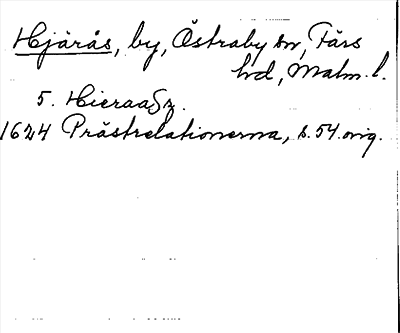 Hjärås, by, Östraby sn, Färs
hd, Malm. l.
5. Hieraasz.
1624 Prästrelationerna, s. 54. orig.